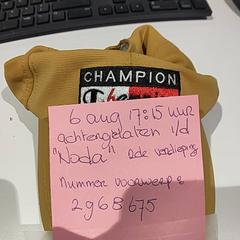 CHAMPION
Champion
6 aug 17:15 uur
achtergelaten i/d
"Noda" 2de verdieping
nummer voorwerp:
2968675